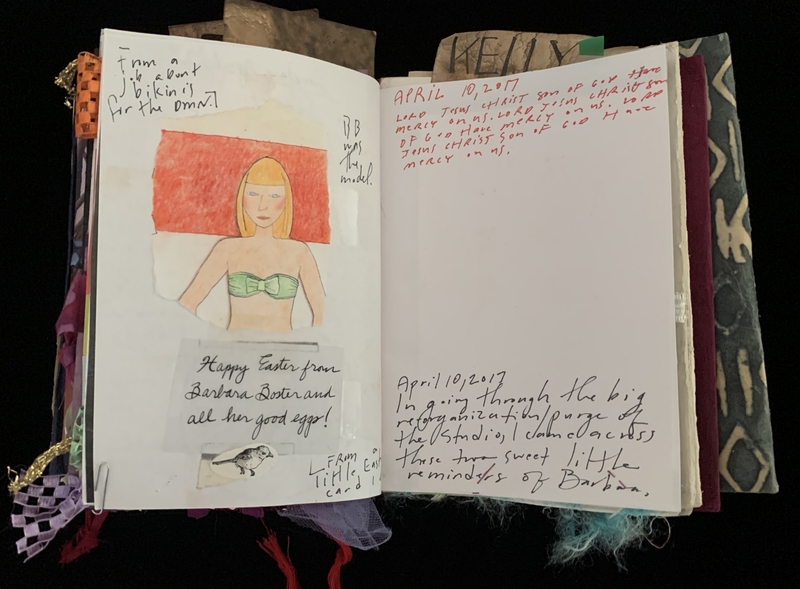 From a
job about
bikinis
for the DMN
BB
was
the
model.
Happy Easter from
Barbara Boster and
all her good eggs!
From a
little East
card I
KELLY
APRIL 10, 2017
LORD JESUS CHRIST SON OF GOD HAVE
MERCY ON US. LORD JESUS CHRIST SON
OF GOD HAVE MERCY ON US. LORD
JESUS CHRIST SON OF GOD HAVE
MERCY ON US.
April 10, 2017
In going through the big
reorganization/purge of
the studio, I came across
these two sweet little
reminders of Barbara.